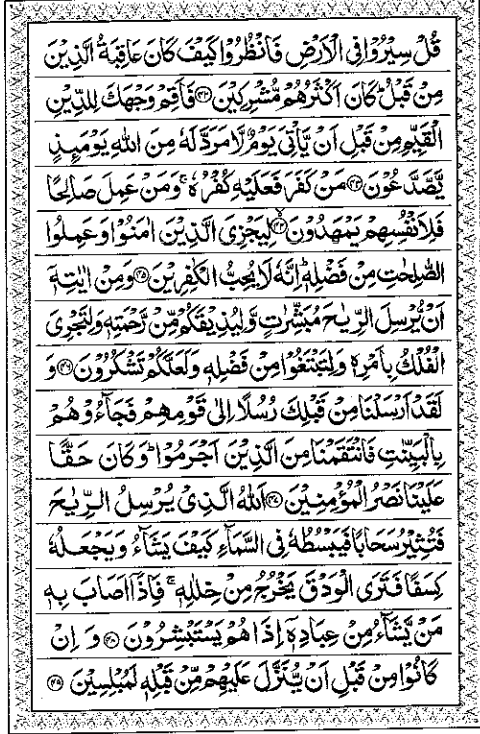 قُلْ سِيْرُوْا فِى الْاَرْضِ فَانْظُرُوْا كَيْفَ كَانَ عَاقِبَةُ الَّذِيْنَ
مِنْ قَبْلُ ؕ كَانَ اَكْثَرُهُمْ مُّشْرِكِيْنَ ﴿۴۲﴾ فَاَقِمْ وَجْهَكَ لِلدِّيْنِ
الْقَيِّمِ مِنْ قَبْلِ اَنْ يَّاْتِىَ يَوْمٌ لَّا مَرَدَّ لَهٗ مِنَ اللّٰهِ يَوْمَئِذٍ
يَّصَّدَّعُوْنَ ﴿۴۳﴾ مَنْ كَفَرَ فَعَلَيْهِ كُفْرُهٗ ۚ وَمَنْ عَمِلَ صَالِحًا
فَلِاَنْفُسِهِمْ يَمْهَدُوْنَ ﴿۴۴﴾ لِيَجْزِىَ الَّذِيْنَ اٰمَنُوْا وَعَمِلُوا
الصّٰلِحٰتِ مِنْ فَضْلِهٖ ؕ اِنَّهٗ لَا يُحِبُّ الْكٰفِرِيْنَ ﴿۴۵﴾ وَمِنْ اٰيٰتِهٖۤ
اَنْ يُّرْسِلَ الرِّيٰحَ مُبَشِّرٰتٍ وَّلِيُذِيْقَكُمْ مِّنْ رَّحْمَتِهٖ وَلِتَجْرِىَ
الْفُلْكُ بِاَمْرِهٖ وَلِتَبْتَغُوْا مِنْ فَضْلِهٖ وَلَعَلَّكُمْ تَشْكُرُوْنَ ﴿۴۶﴾ وَ
لَقَدْ اَرْسَلْنَا مِنْ قَبْلِكَ رُسُلًا اِلٰى قَوْمِهِمْ فَجَآءُوْهُمْ
بِالْبَيِّنٰتِ فَانْتَقَمْنَا مِنَ الَّذِيْنَ اَجْرَمُوْا ؕ وَكَانَ حَقًّا
عَلَيْنَا نَصْرُ الْمُؤْمِنِيْنَ ﴿۴۷﴾ اَللّٰهُ الَّذِىْ يُرْسِلُ الرِّيٰحَ
فَتُثِيْرُ سَحَابًا فَيَبْسُطُهٗ فِى السَّمَآءِ كَيْفَ يَشَآءُ وَيَجْعَلُهٗ
كِسَفًا فَتَرَى الْوَدْقَ يَخْرُجُ مِنْ خِلٰلِهٖ ۚ فَاِذَاۤ اَصَابَ بِهٖ
مَنْ يَّشَآءُ مِنْ عِبَادِهٖۤ اِذَا هُمْ يَسْتَبْشِرُوْنَ ﴿۴۸﴾ وَ اِنْ
كَانُوْا مِنْ قَبْلِ اَنْ يُّنَزَّلَ عَلَيْهِمْ مِّنْ قَبْلِهٖ لَمُبْلِسِيْنَ ﴿۴۹﴾